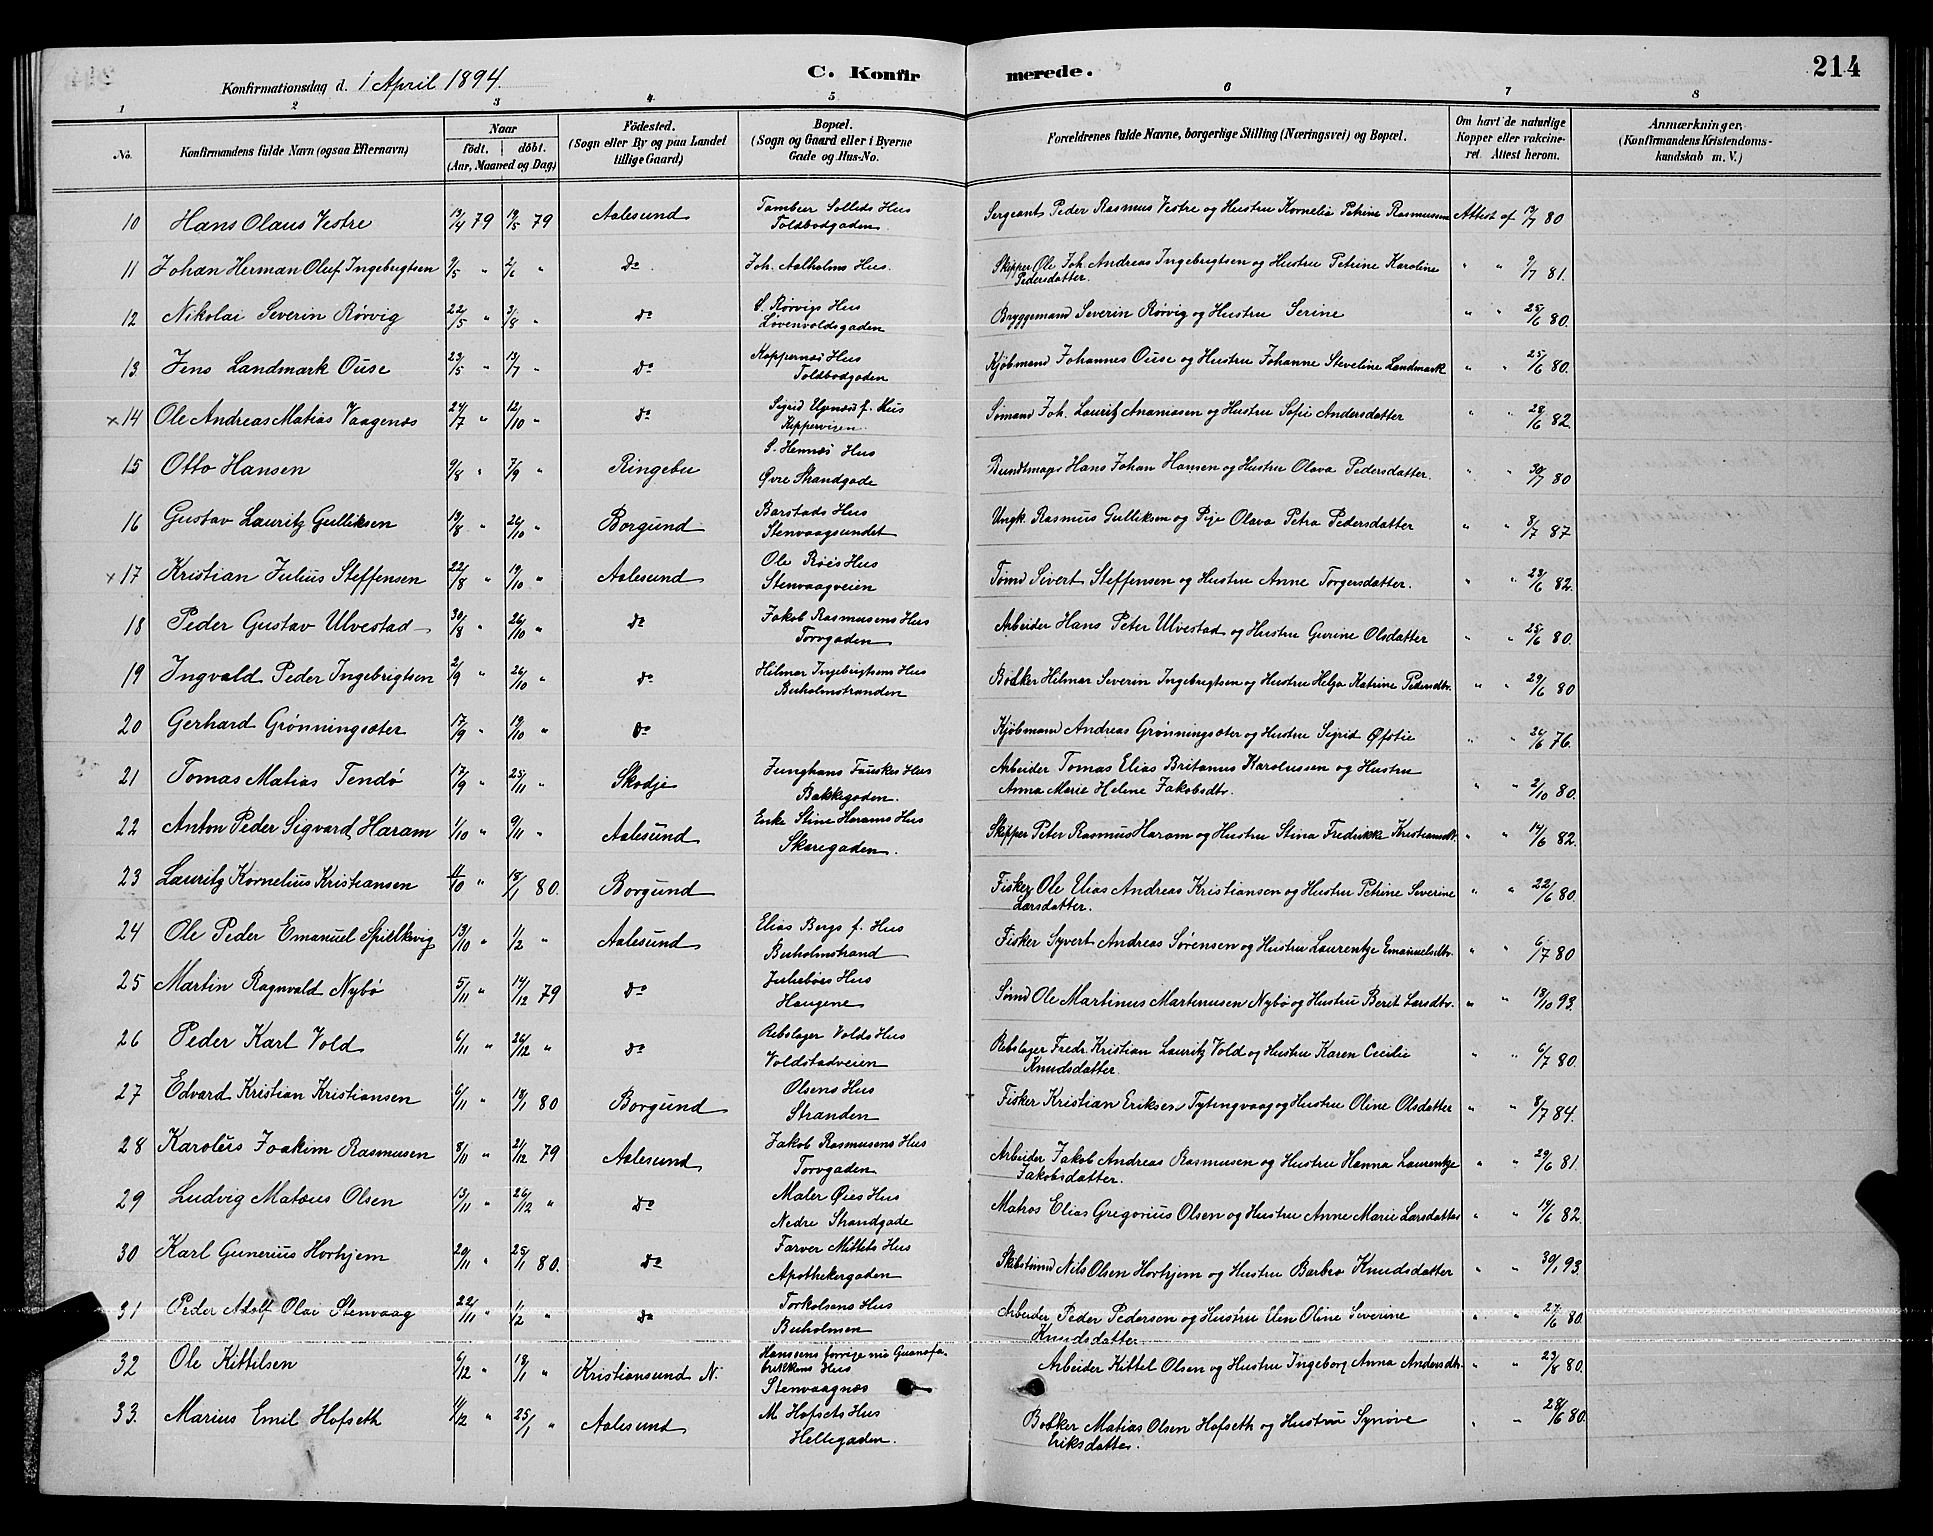 Konfirmationsdag d. 1 April 1894.
C. Konfir merede.
214
1 2 3 4 5 6 7 8
No.
Konfirmandens fulde Navn (ogsaa Efternavn)
Naar
födt. döbt.
(Aar, Maaned og Dag)
Födested.
(Sogn eller By og paa Landet
tillige Gaard)
Bopæl.
(Sogn og Gaard eller i Byerne
Gade og Hus-No.
Forældrenes fulde Navne, borgerlige Stilling (Næringsvei) og Bopæl.
Om havt de naturlige
Kopper eller vakcine-
ret. Attest herom.
Anmærkninger.
(Konfirmandens Kristendoms-
kundskab m. V.)
10 Hans Olaus Vestre 19/4 79 19/5 79 Aalesund Tambur Sollids Hus
Toldbodgaden
Sergeant Peder Rasmus Vestre og Hustru Kornelia Petrine Rasmussen Attest af 19/7 80
11 Johan Herman Oluf Ingebrigtsen 9/5 " 2/6 " Do Joh. Aalholms Hus.
Skipper Ole Joh. Andreas Ingebrigtsen og Hustru Petrine Karoline
Pedersdatter. " " 9/7 81.
12 Nikolai Severin Rörvig 22/5 " 3/8 " Do S. Rörvigs Hus
Løvenvoldsgaden
Bryggemand Severin Rörvig og Hustru Serine " " 25/6 80.
13. Jens Landmark Ouse 23/5 " 13/7 " Do Koppernæs Hus
Toldbodgaden
Kjöbmand Johannes Ouse og Hustru Johanne Steveline Landmark " " 25/6 80.
x14 Ole Andreas Matias Vaagenæs 24/7 " 12/10 " Do Sigrid f. Hus
Kippervigen
Sömand Joh. Lauritz Ananiasen og Hustru Sofie Andersdatter " " 28/6 82
15 Otto Hansen 9/8 " 7/9 " Ringebu S. Hennøs Hus
Øvre Strandgade
Bundtmager Hans Johan Hansen og Hustru Olava Pedersdatter. " " 30/7 80
16 Gustav Lauritz Gulliksen 19/8 " 26/10 " Borgund Barstads Hus
Stenvaagsundet
Ungk. Rasmus Gulliksen og Pige Olava Petra Pedersdatter " " 8/7 87
x17 Kristian Julius Steffensen 22/8 " 19/10 " Aalesund Ole Röes Hus
Stenvaagveien
Tömd Sivert Steffensen og Hustru Anne Torgersdatter. " " 23/6 82.
18 Peder Gustav Ulvestad 30/8 " 26/10 " Do Jakob Rasmusens Hus
Torvgaden
Arbeider Hans Peter Ulvestad og Hustru Gurine Olsdatter " " 25/6 80.
19 Ingvald Peder Ingebrigtsen 2/9 " 26/10 " Do Hilmar Ingebrigtsens Hus
Buholmstranden
Bödker Hilmar Severin Ingebrigtsen og Hustru Helga Katrine Pedersdtr. " " 29/6 80
20 Gerhard Grönningsæter 17/9 " 19/10 " Do
Kjöbmand Andreas Grönningsæter og Hustru Sigrid Øfstie " " 24/6 76.
21 Tomas Matias Tendö 17/9 " 23/11 " Skodje Junghans Fauskes Hus
Bakkegaden.
Arbeider Tomas Elias Britanus Karolussen og Hustru
Anna Marie Helene Jakobsdtr. " " 2/10 80.
22 Anton Peder Sigvard Haram 1/10 " 9/11 " Aalesund Enke Stine Harams Hus
Skaregaden.
Skipper Peter Rasmus Haram og Hustru Stina Fredrikke Kristiansdtr. " " 14/6 82.
23 Lauritz Kornelius Kristiansen 4/10 " 18/1 80. Borgund
Fisker Ole Elias Andreas Kristiansen og Hustru Petrine Severine
Larsdatter. " " 22/6 80.
24 Ole Peder Emanuel Spielkvig 13/10 " 1/2 " Aalesund Elias Borgs f. Hus
Buholmstrand
Fisker Syvert Andreas Sørensen og Hustru Laurentze Emanuelsdtr. " " 6/7 80
25 Martin Ragnvald Nybö 5/11 " 14/12 79 Do Juliebøes Hus
Haugene
Sömd Ole Martinus Martinusen Nybö og Hustru Berit Larsdtr. " " 18/10 93.
26 Peder Karl Vold 6/11 " 26/12 " Do Rebslager Volds Hus
Voldstadveien
Rebslager Fredr. Kristian Lauritz Vold og Hustru Karen Cecilie
Knudsdatter. " " 6/7 80.
27 Edvard Kristian Kristiansen 6/11 " 18/1 80 Borgund Olsens Hus
Stranden
Fisker Kristian Eriksen Tytingvaag og Hustru Oline Olsdatter " " 8/7 84.
28 Karolus Joakim Rasmusen 8/11 " 21/12 79 Aalesund Jakob Rasmusens Hus
Torvgaden
Arbeider Jakob Andreas Rasmusen og Hustru Hanna Laurentze
Jakobsdatter. " " 29/6 81.
29 Ludvig Matæus Olsen 13/11 " 26/12 " Do Maler Øies Hus
Nedre Strandgade
Matros Elias Gregorius Olsen og Hustru Anne Marie Larsdatter " " 14/6 82.
30 Karl Gunerius Horhjem 20/11 " 25/1 80. Do Farver Mittets Hus
Apothekergaden
Skibstömd Nils Olsen Horhjem og Hustru Barbro Knudsdatter " " 30/1 93.
31 Peder Adolf Olai Stenvaag 22/11 " 1/2 " Do Torkolsens Hus
Buholmen
Arbeider Peder Pedersen og Hustru Elen Oline Severine
Knudsdatter " " 27/6 80.
32 Ole Kittilsen 6/12 " 18/1 " Kristiansund N. Hansens forrige nu Guanofa-
brikkens Hus
Stenvaagnæs
Arbeider Kittel Olsen og Hustru Ingeborg Anna Andersdtr. " " 23/8 80.
33. Marius Emil Hofseth 11/12 " 25/1 " Aalesund M Hofsets Hus
Hellegaden.
Bödker Matias Olsen Hofseth og Hustru Synöve
Eriksdatter. " " 28/6 80.